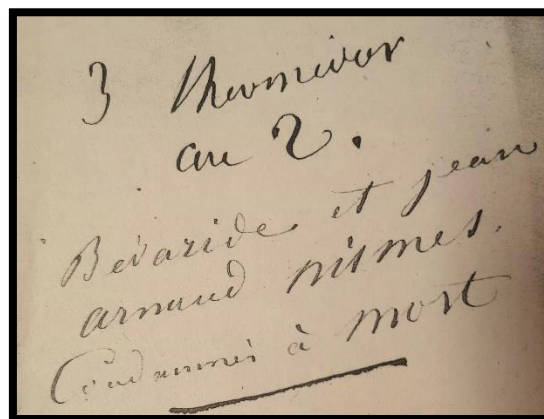 3 thermidor
an 2.
Bédaride et jean
arnaud nismes.
Condamnés à mort